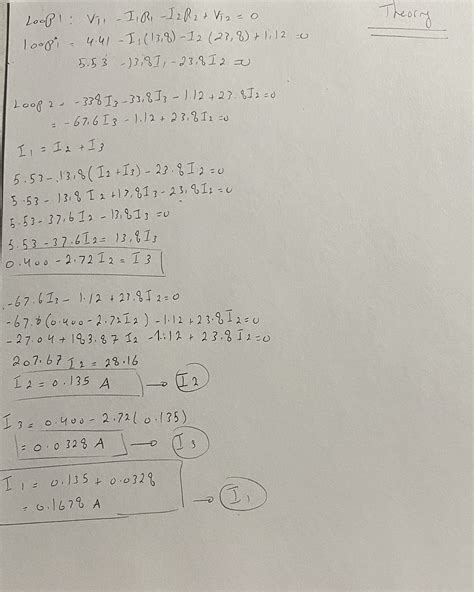 Theory
Loop 1: VT1 - I1R1 - I2R2 + VT2 = 0
Loop 1 = 4.41 - I1(13.8) - I2(23.8) + 1.12 = 0
5.53 - 13.8I1 - 23.8I2 = 0
Loop 2 - -33.8I3 - 33.8I3 - 1.12 + 23.8I2 = 0
= -67.6I3 - 1.12 + 23.8I2 = 0
I1 = I2 + I3
5.53 - 13.8(I2 + I3) - 23.8I2 = 0
5.53 - 13.8I2 + 13.8I3 - 23.8I2 = 0
5.53 - 37.6I2 - 13.8I3 = 0
5.53 - 37.6I2 = 13.8I3
0.400 - 2.72I2 = I3
-67.6I3 - 1.12 + 23.8I2 = 0
-67.6(0.400 - 2.72I2) - 1.12 + 23.8I2 = 0
-27.04 + 183.87I2 - 1.12 + 23.8I2 = 0
207.67I2 = 28.16
I2 = 0.135 A → I2
I3 = 0.400 - 2.72(0.135)
= 0.0328 A → I3
I1 = 0.135 + 0.0328
= 0.1678 A → I1